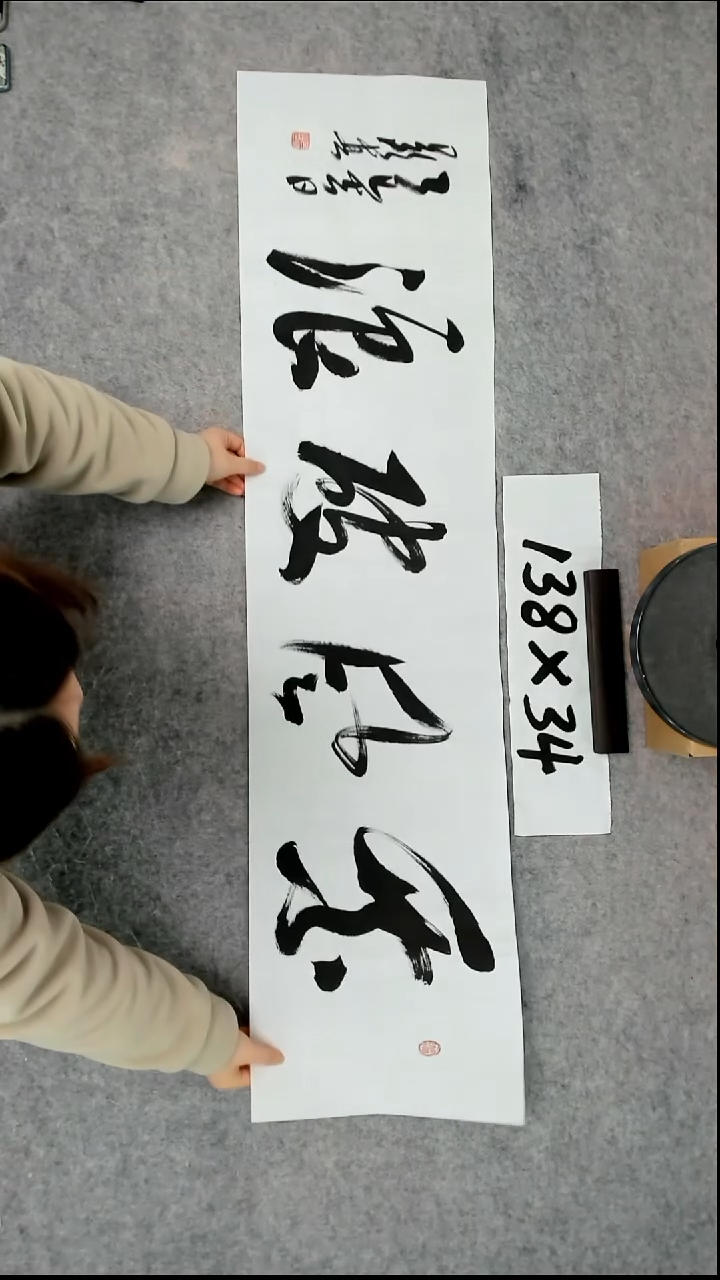 乘风破浪
138×34